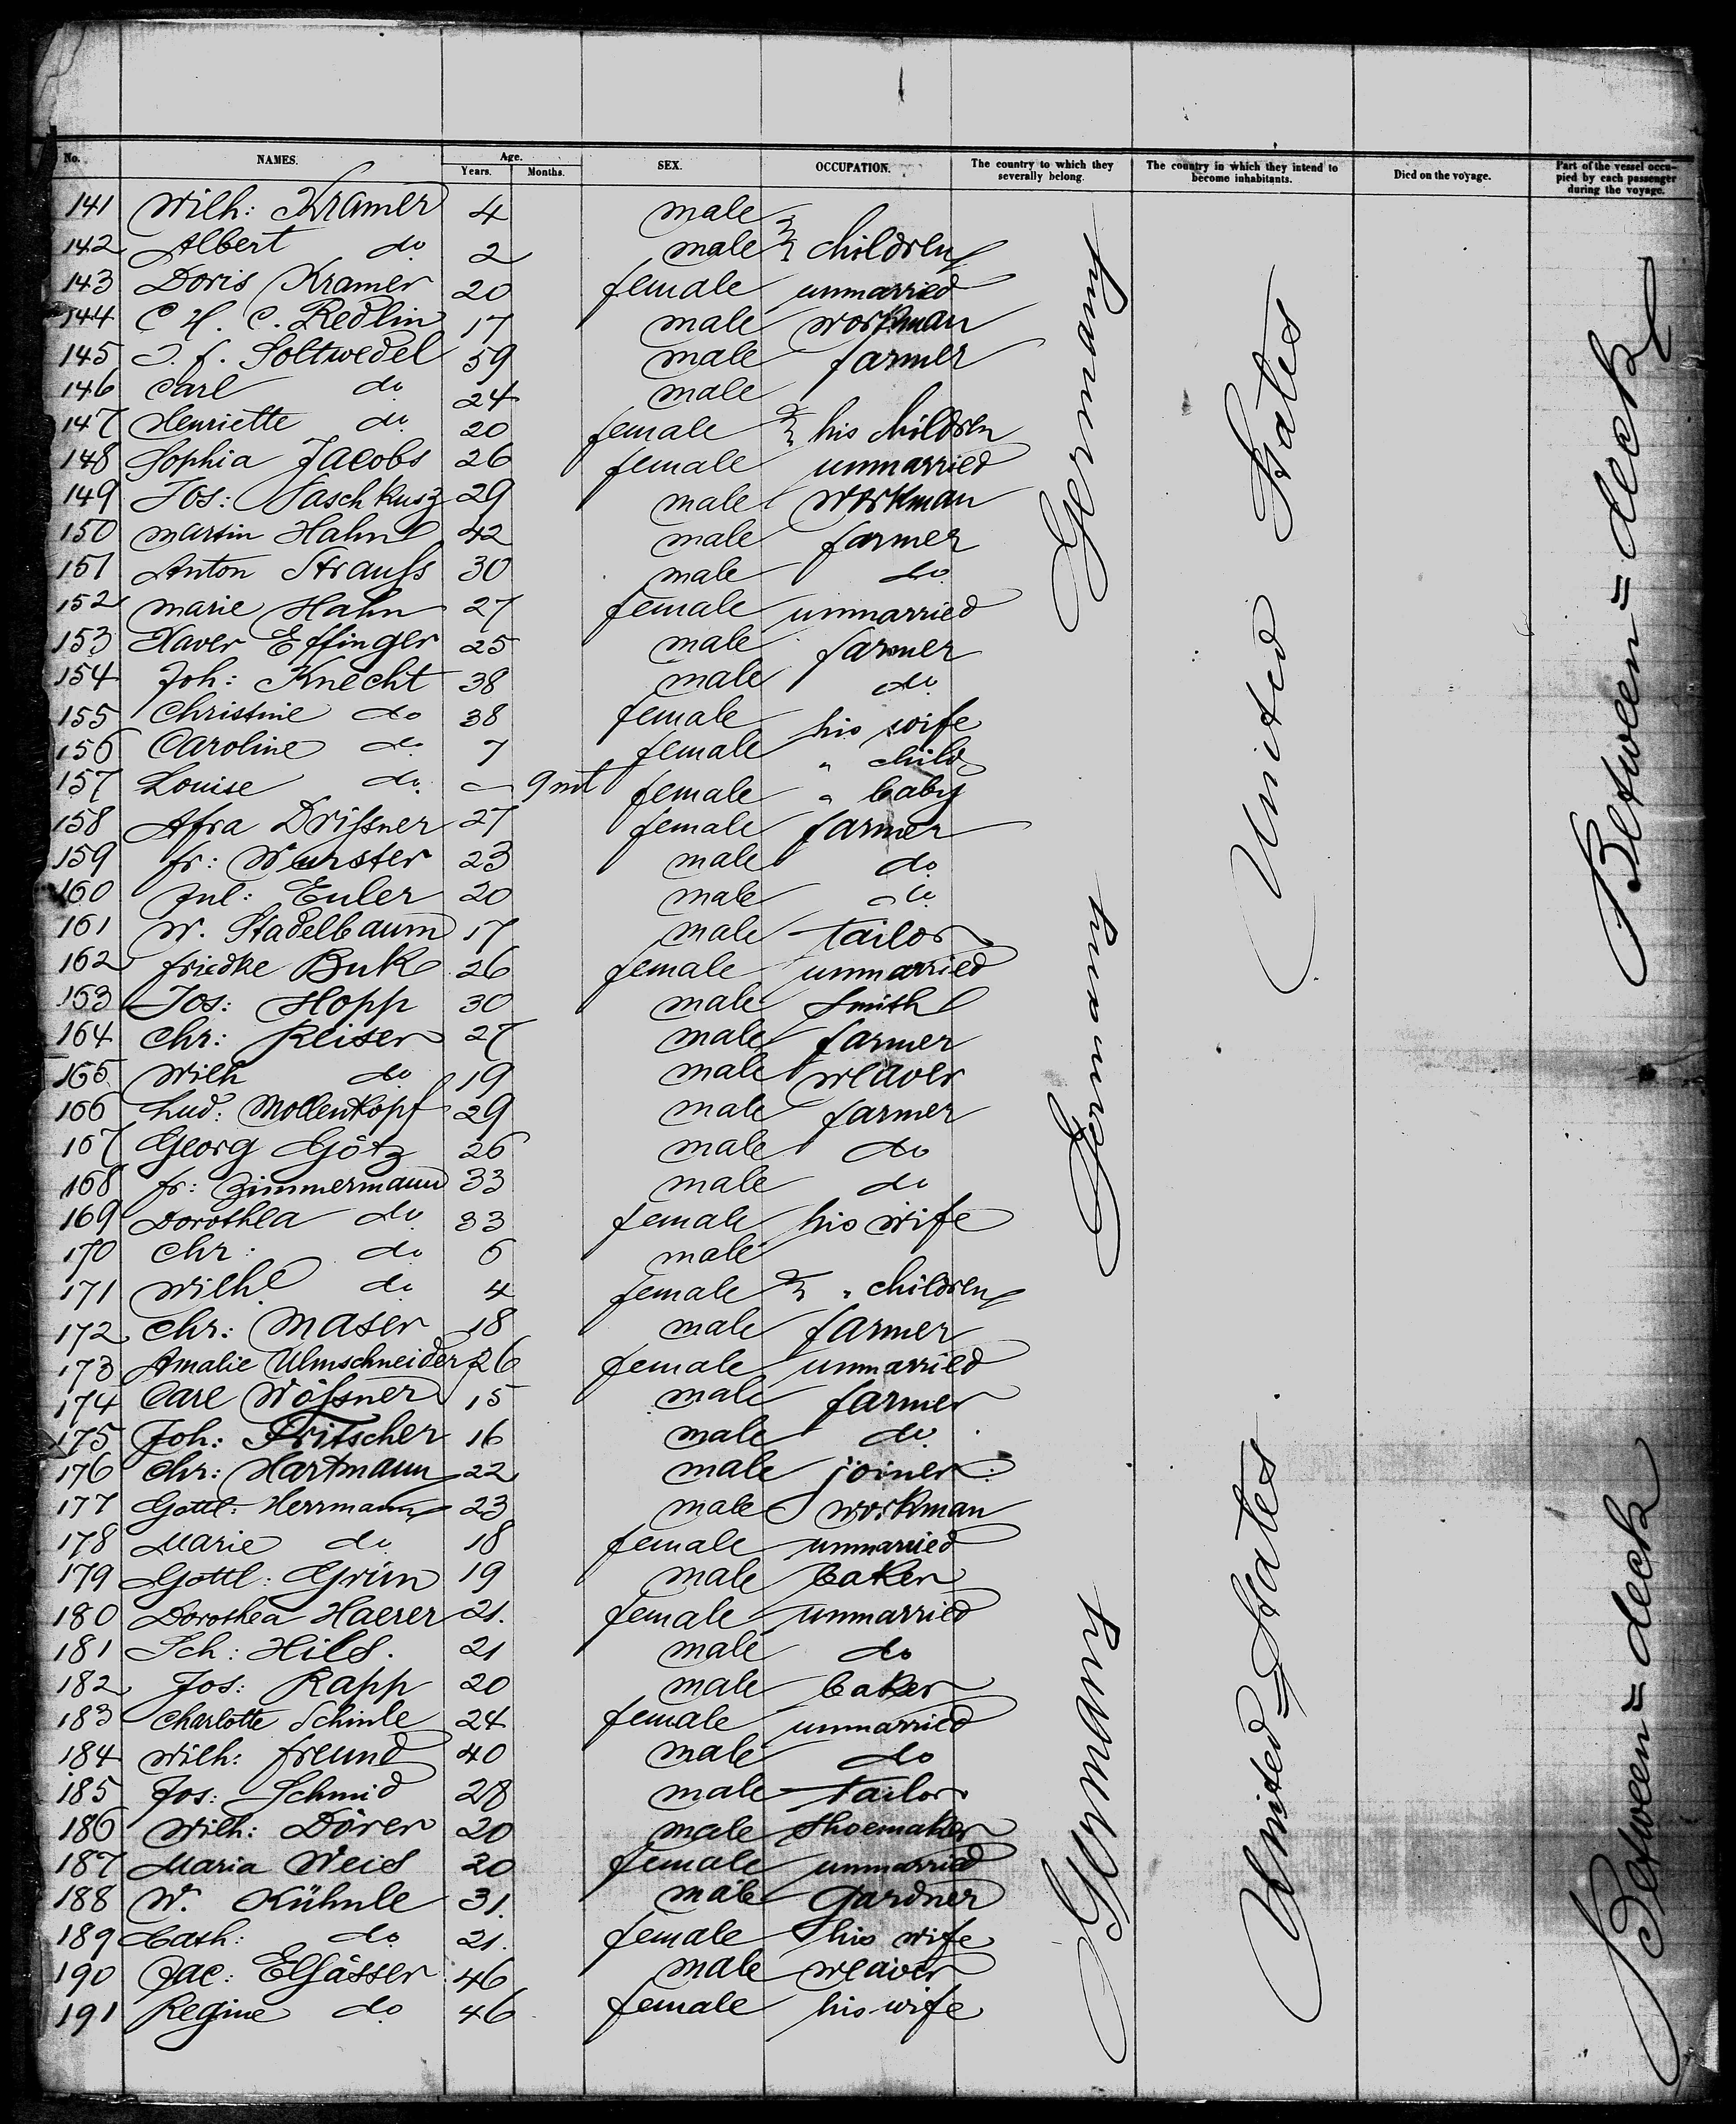 No. NAMES. Age. Years. Months. SEX. OCCUPATION. The country to which they severally belong. The country in which they intend to become inhabitants. Died on the voyage. Part of the vessel occupied by each passenger during the voyage.
141 Wilh: Kramer 4 male
142 Albert do 2 male children
143 Doris Kramer 20 female unmarried
144 C. H. C. Redlin 17 male workman
145 J. f. Soltwedel 59 male farmer
146 Carl do 24 male
147 Henriette do 20 female his children
148 Sophia Jacobs 26 female unmarried
149 Jos: Paschkusz 29 male workman
150 Martin Hahn 42 male farmer
151 Anton Strauß 30 male do
152 Marie Hahn 27 female unmarried
153 Xaver Effinger 25 male farmer
154 Joh: Knecht 38 male do
155 Christine do 38 female his wife
156 Caroline do 7 female " child
157 Louise do – 9 mt female " baby
158 Afra Drißner 27 female farmer
159 fr: Wurster 23 male do
160 Jul: Euler 20 male do
161 W. Stadelbaum 17 male tailor
162 friedke Buk 26 female unmarried
163 Jos: Hopp 30 male Smith
164 Chr: Reiser 27 male farmer
165 Wilh do 19 male weaver
166 Lud: Mollenkopf 29 male farmer
167 Georg Götz 26 male do
168 fr: Zimmermann 33 male do
169 Dorothea do 33 female his wife
170 Chr: do 6 male
171 Wilhe do 4 female " children
172 Chr: Maser 18 male farmer
173 Amalie Ulmschneider 26 female unmarried
174 Carl Wößner 15 male farmer
175 Joh: Fritscher 16 male do
176 Chr: Hartmann 22 male joiner
177 Gottl: Herrmann 23 male workman
178 Marie do 18 female unmarried
179 Gottl: Grün 19 male baker
180 Dorothea Haerer 21. female unmarried
181 Sch: Hils. 21 male do
182 Jos: Rapp 20 male baker
183 Charlotte Schinle 24 female unmarried
184 Wilh: freund 40 male do
185 Jos: Schmid 28 male tailor
186 Wilh: Dörer 20 male Shoemaker
187 Maria Weis 20 female unmarried
188 W. Kühnle 31. male gardner
189 Cath: do 21. female his wife
190 Jac: Elsässer 46 male weaver
191 Regine do 46 female his wife
Germany
Germany
Germany
United States
United States
Between=deck
Between=deck